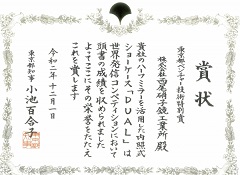 賞状
東京都ベンチャー技術特別賞
株式会社西尾硝子鏡工業所 殿
貴社のハーフミラーを活用した内照式
ショーケース「DUAL」は
世界発信コンペティションにおいて
頭書の成績を収められました
よってここにその栄誉をたたえ
これを賞します
令和二年十二月一日
東京都知事 小池百合子